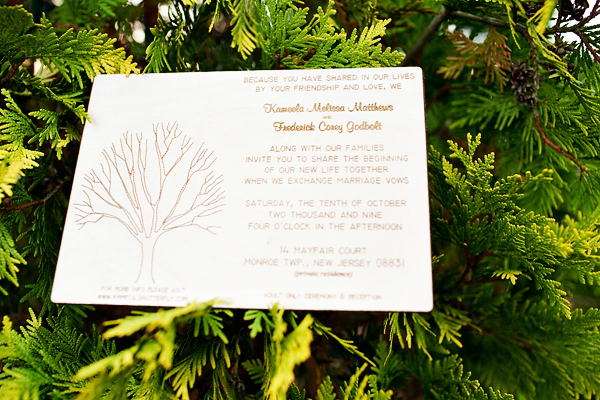 BECAUSE YOU HAVE SHARED IN OUR LIVES
BY YOUR FRIENDSHIP AND LOVE, WE
Kameela Melissa Matthews
and
Frederick Corey Godbolt
ALONG WITH OUR FAMILIES
INVITE YOU TO SHARE THE BEGINNING
OF OUR NEW LIFE TOGETHER
WHEN WE EXCHANGE MARRIAGE VOWS
SATURDAY, THE TENTH OF OCTOBER
TWO THOUSAND AND NINE
FOUR O'CLOCK IN THE AFTERNOON
14 MAYFAIR COURT
MONROE TWP., NEW JERSEY 08831
(private residence)
FOR MORE INFO PLEASE VISIT
ADULT ONLY CEREMONY & RECEPTION